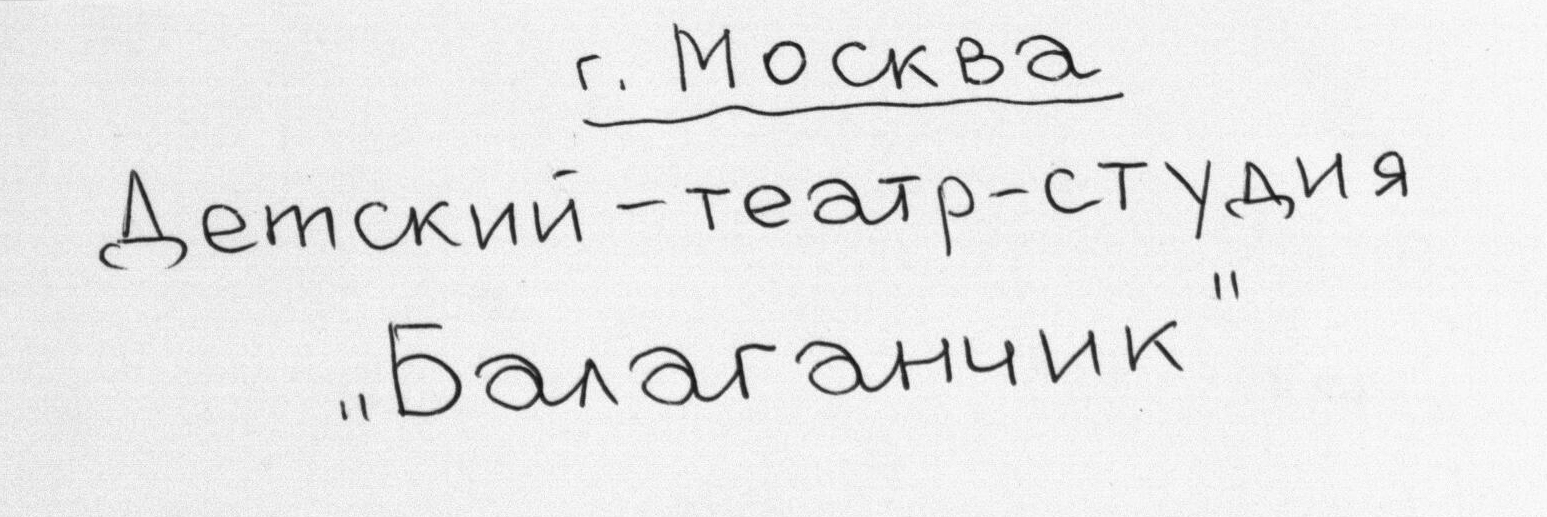 г. Москва
Детский - театр-студия
„Балаганчик"